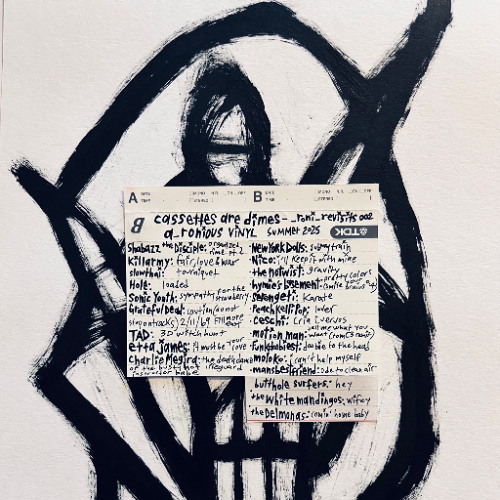 A
B
B cassettes are dimes - _roni_revisits 002
a_ronious vinyl summer 2025
TDK
Shabazz the Disciple: organized rime pt 2
Killarmy: fair, love & war
slowthai: tourniquet
Hole: loaded
Sonic Youth: sympathy for the strawberry
Grateful Dead: 2/11/69 Fillmore East
TAD: 3D witch hunt
etta james: it must be your love
Charlie Megira: the death dance of the busty
New York Dolls: subway train
Nico: i'll keep it with mine
the notwist: gravity
hymies basement: pretty colors
serengeti: Karate
Peach Kelli Pop:
Ceschi: Cría Cuervos
Motion Man: tell me what you want
funkdoobiest: doobie to the head
moloko: i can't help myself
mansbestfriend: ode to clean air
butthole surfers: hey
the white mandingos: wifey
the Delmonas: comin' home baby